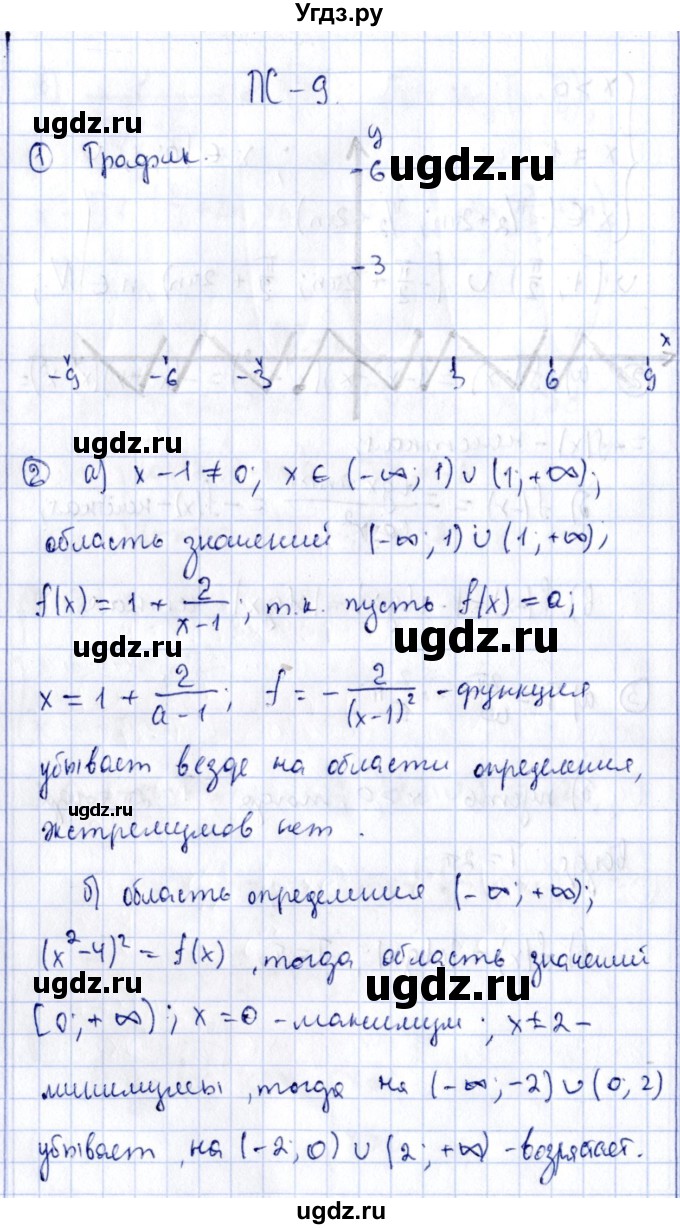 Угдз.ру
ПС-9.
ugdz.ru
① График.
y
6
ugdz.ru
3
x
-9 -6 -3 3 6 9
ugdz.ru ugdz.ru
② а) x-1≠0; x∈(-∞;1)∪(1;+∞);
область значений (-∞;1)∪(1;+∞);
ugdz.ru
f(x)=1+2/(x-1); т.к. пусть f(x)=a;
ugdz.ru
x=1+2/(a-1); f=-2/(x-1)² - функция
убывает везде на области определения,
ugdz.ru
экстремумов нет.
б) область определения (-∞;+∞);
(x²-4)²=f(x), тогда область значений
ugdz.ru
[0;+∞); x=0 - максимум; x±2 -
минимумы, тогда на (-∞;-2)∪(0;2)
ugdz.ru
убывает, на (-2;0)∪(2;+∞) - возрастает.
ugdz.ru